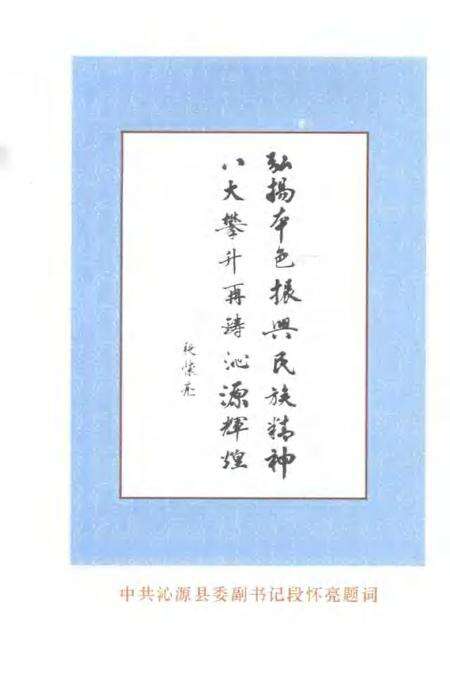 弘揚本色振興民族精神
八大攀升再鑄沁源輝煌
段懷亮
中共沁源县委副书记段怀亮题词